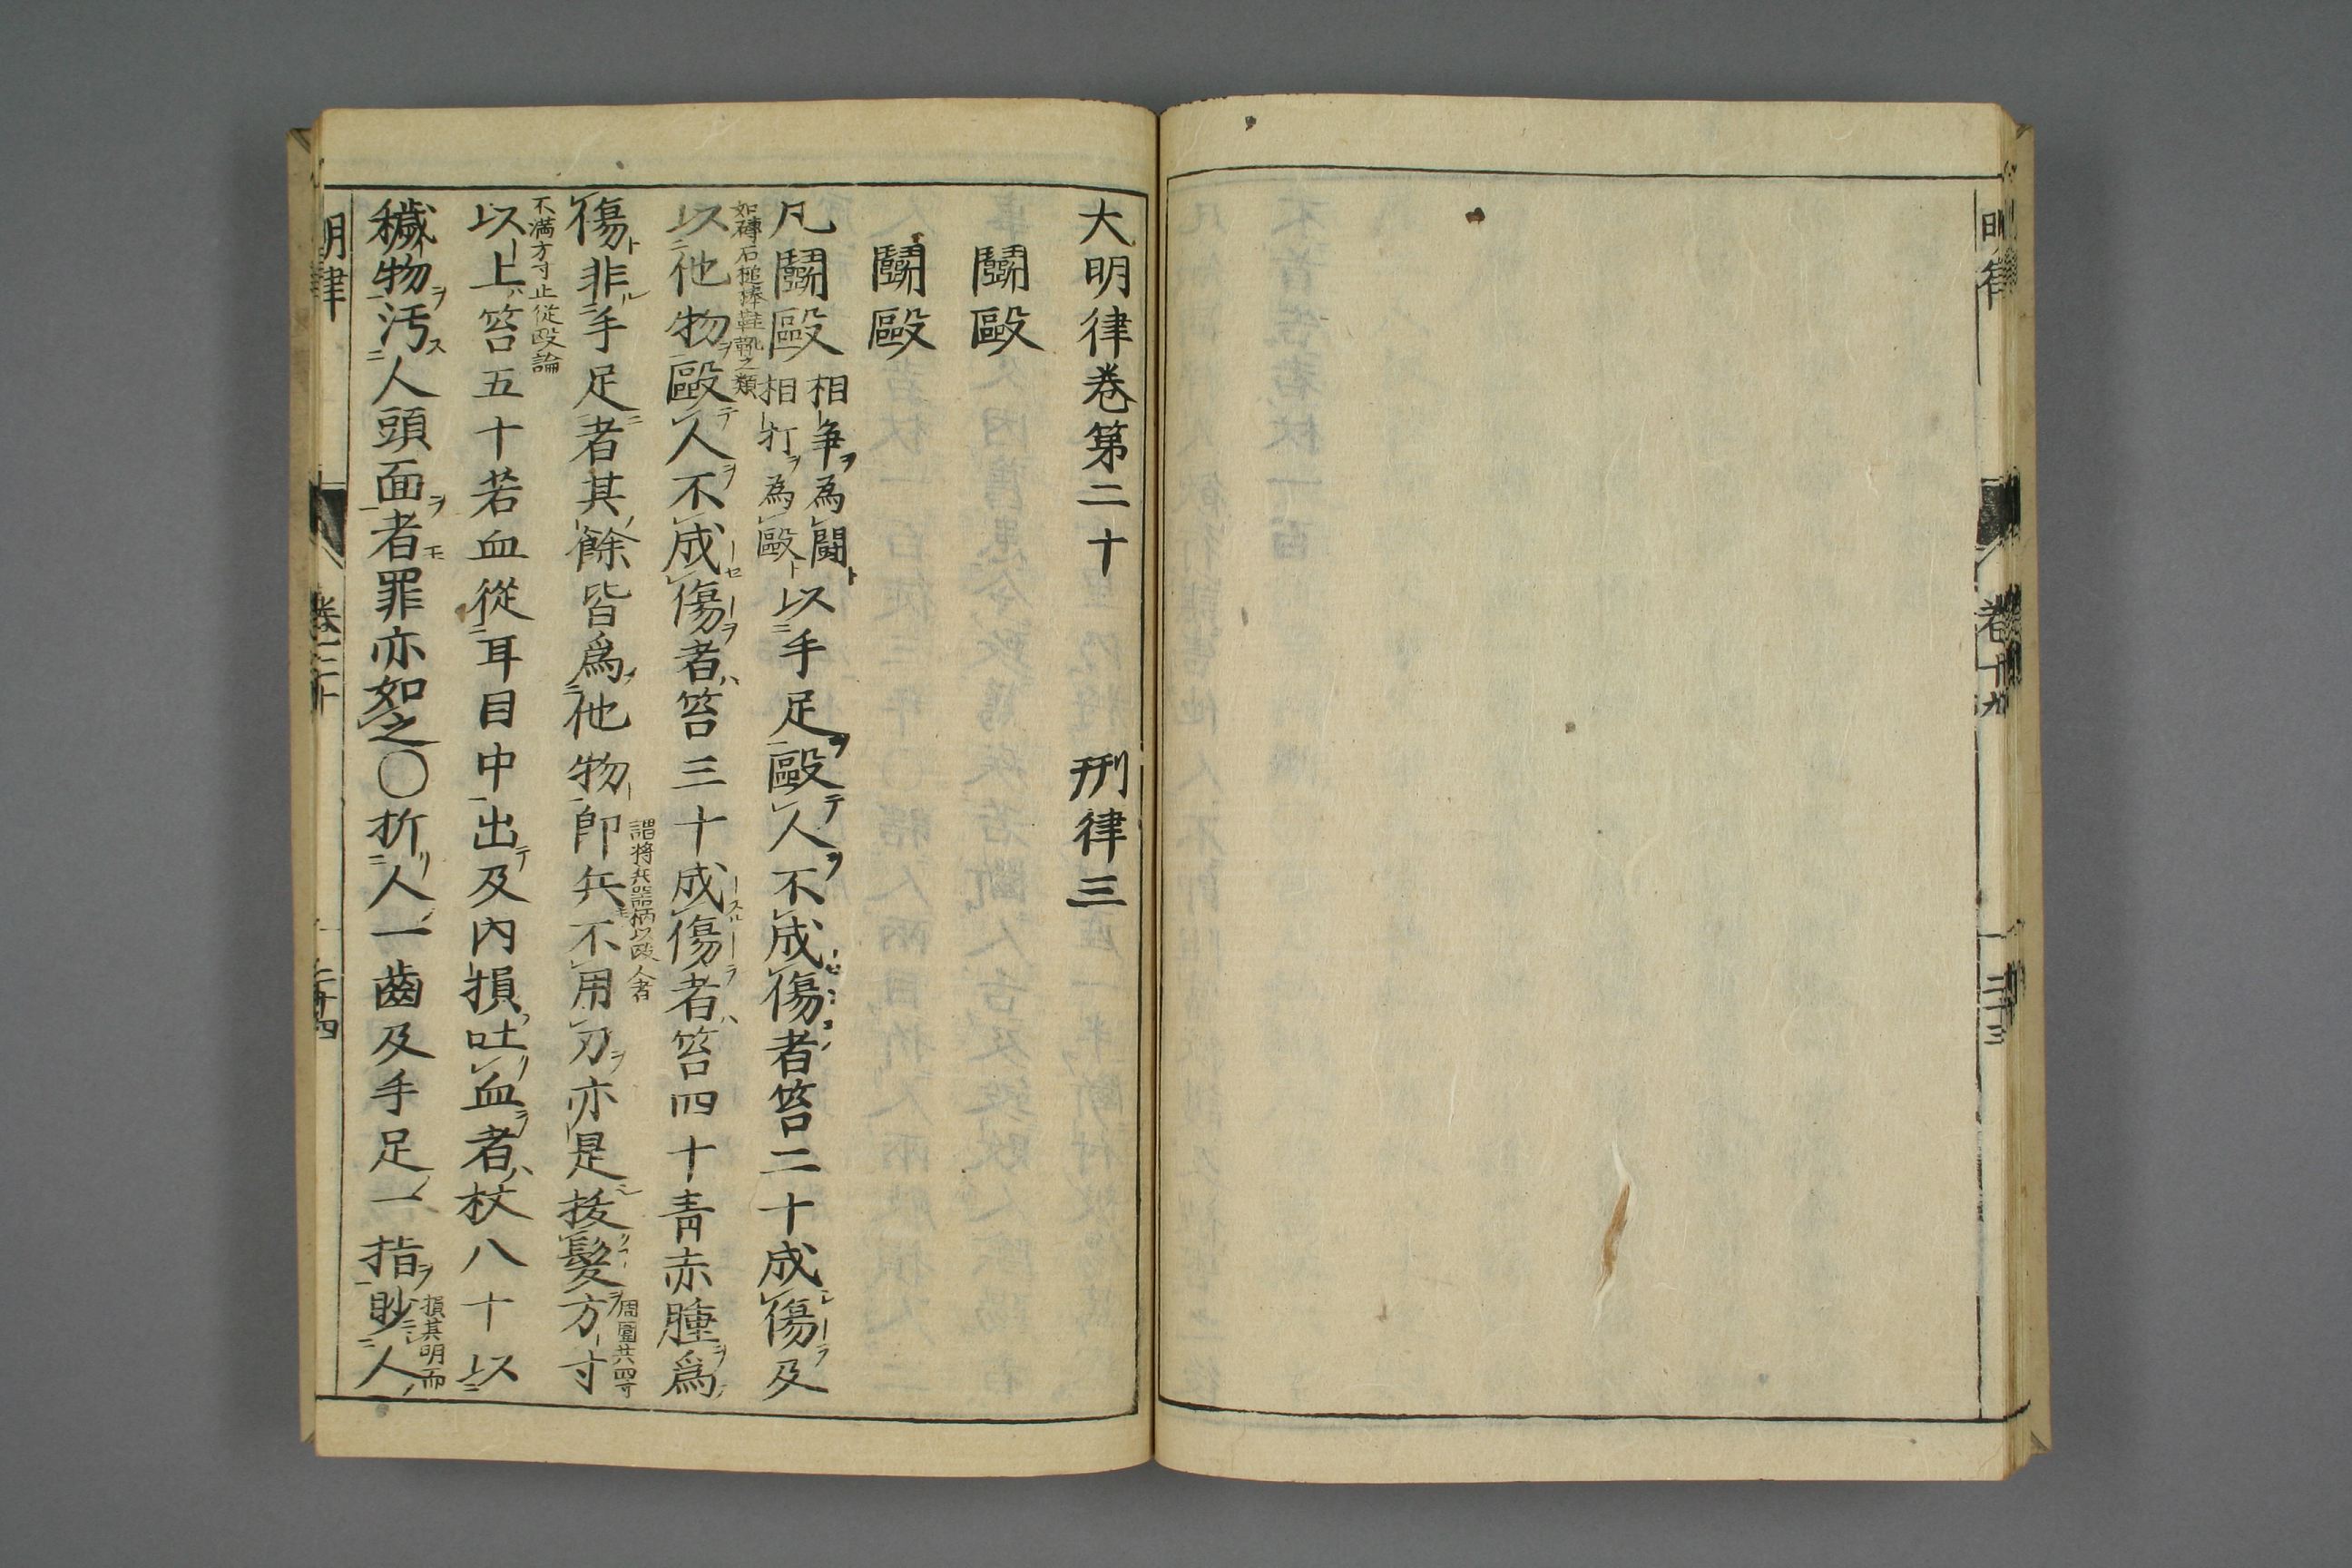 大明律卷第二十　刑律三
鬪毆
鬪毆
凡鬪毆相爭為鬪相打為毆以手足毆人不成傷者笞二十成傷及
如磚石槌捧鞋靴之類
以他物毆人不成傷者笞三十成傷者笞四十青赤腫爲
傷非手足者其餘皆爲他物卽兵不用刃亦是拔髮方寸
謂將兵器柄以毆人者
周圍共四寸
不滿方寸止從毆論
以上笞五十若血從耳目中出及內損吐血者杖八十以
穢物汚人頭面者罪亦如之○折人一齒及手足一指眇人
損其明而
明律　卷二十　二十四
明律　卷十九